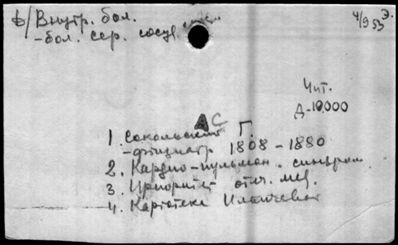 б/ Внутр. бол.
- бол. сер. сосуд. сист.
4/9 53 Э.
Чит.
Д-10,000
АС
1. Сокольский Г.
- фтизиатр 1808-1880
2. Кардио-пульмон. синдром
3. Приоритет отеч. мед.
4. Картотека